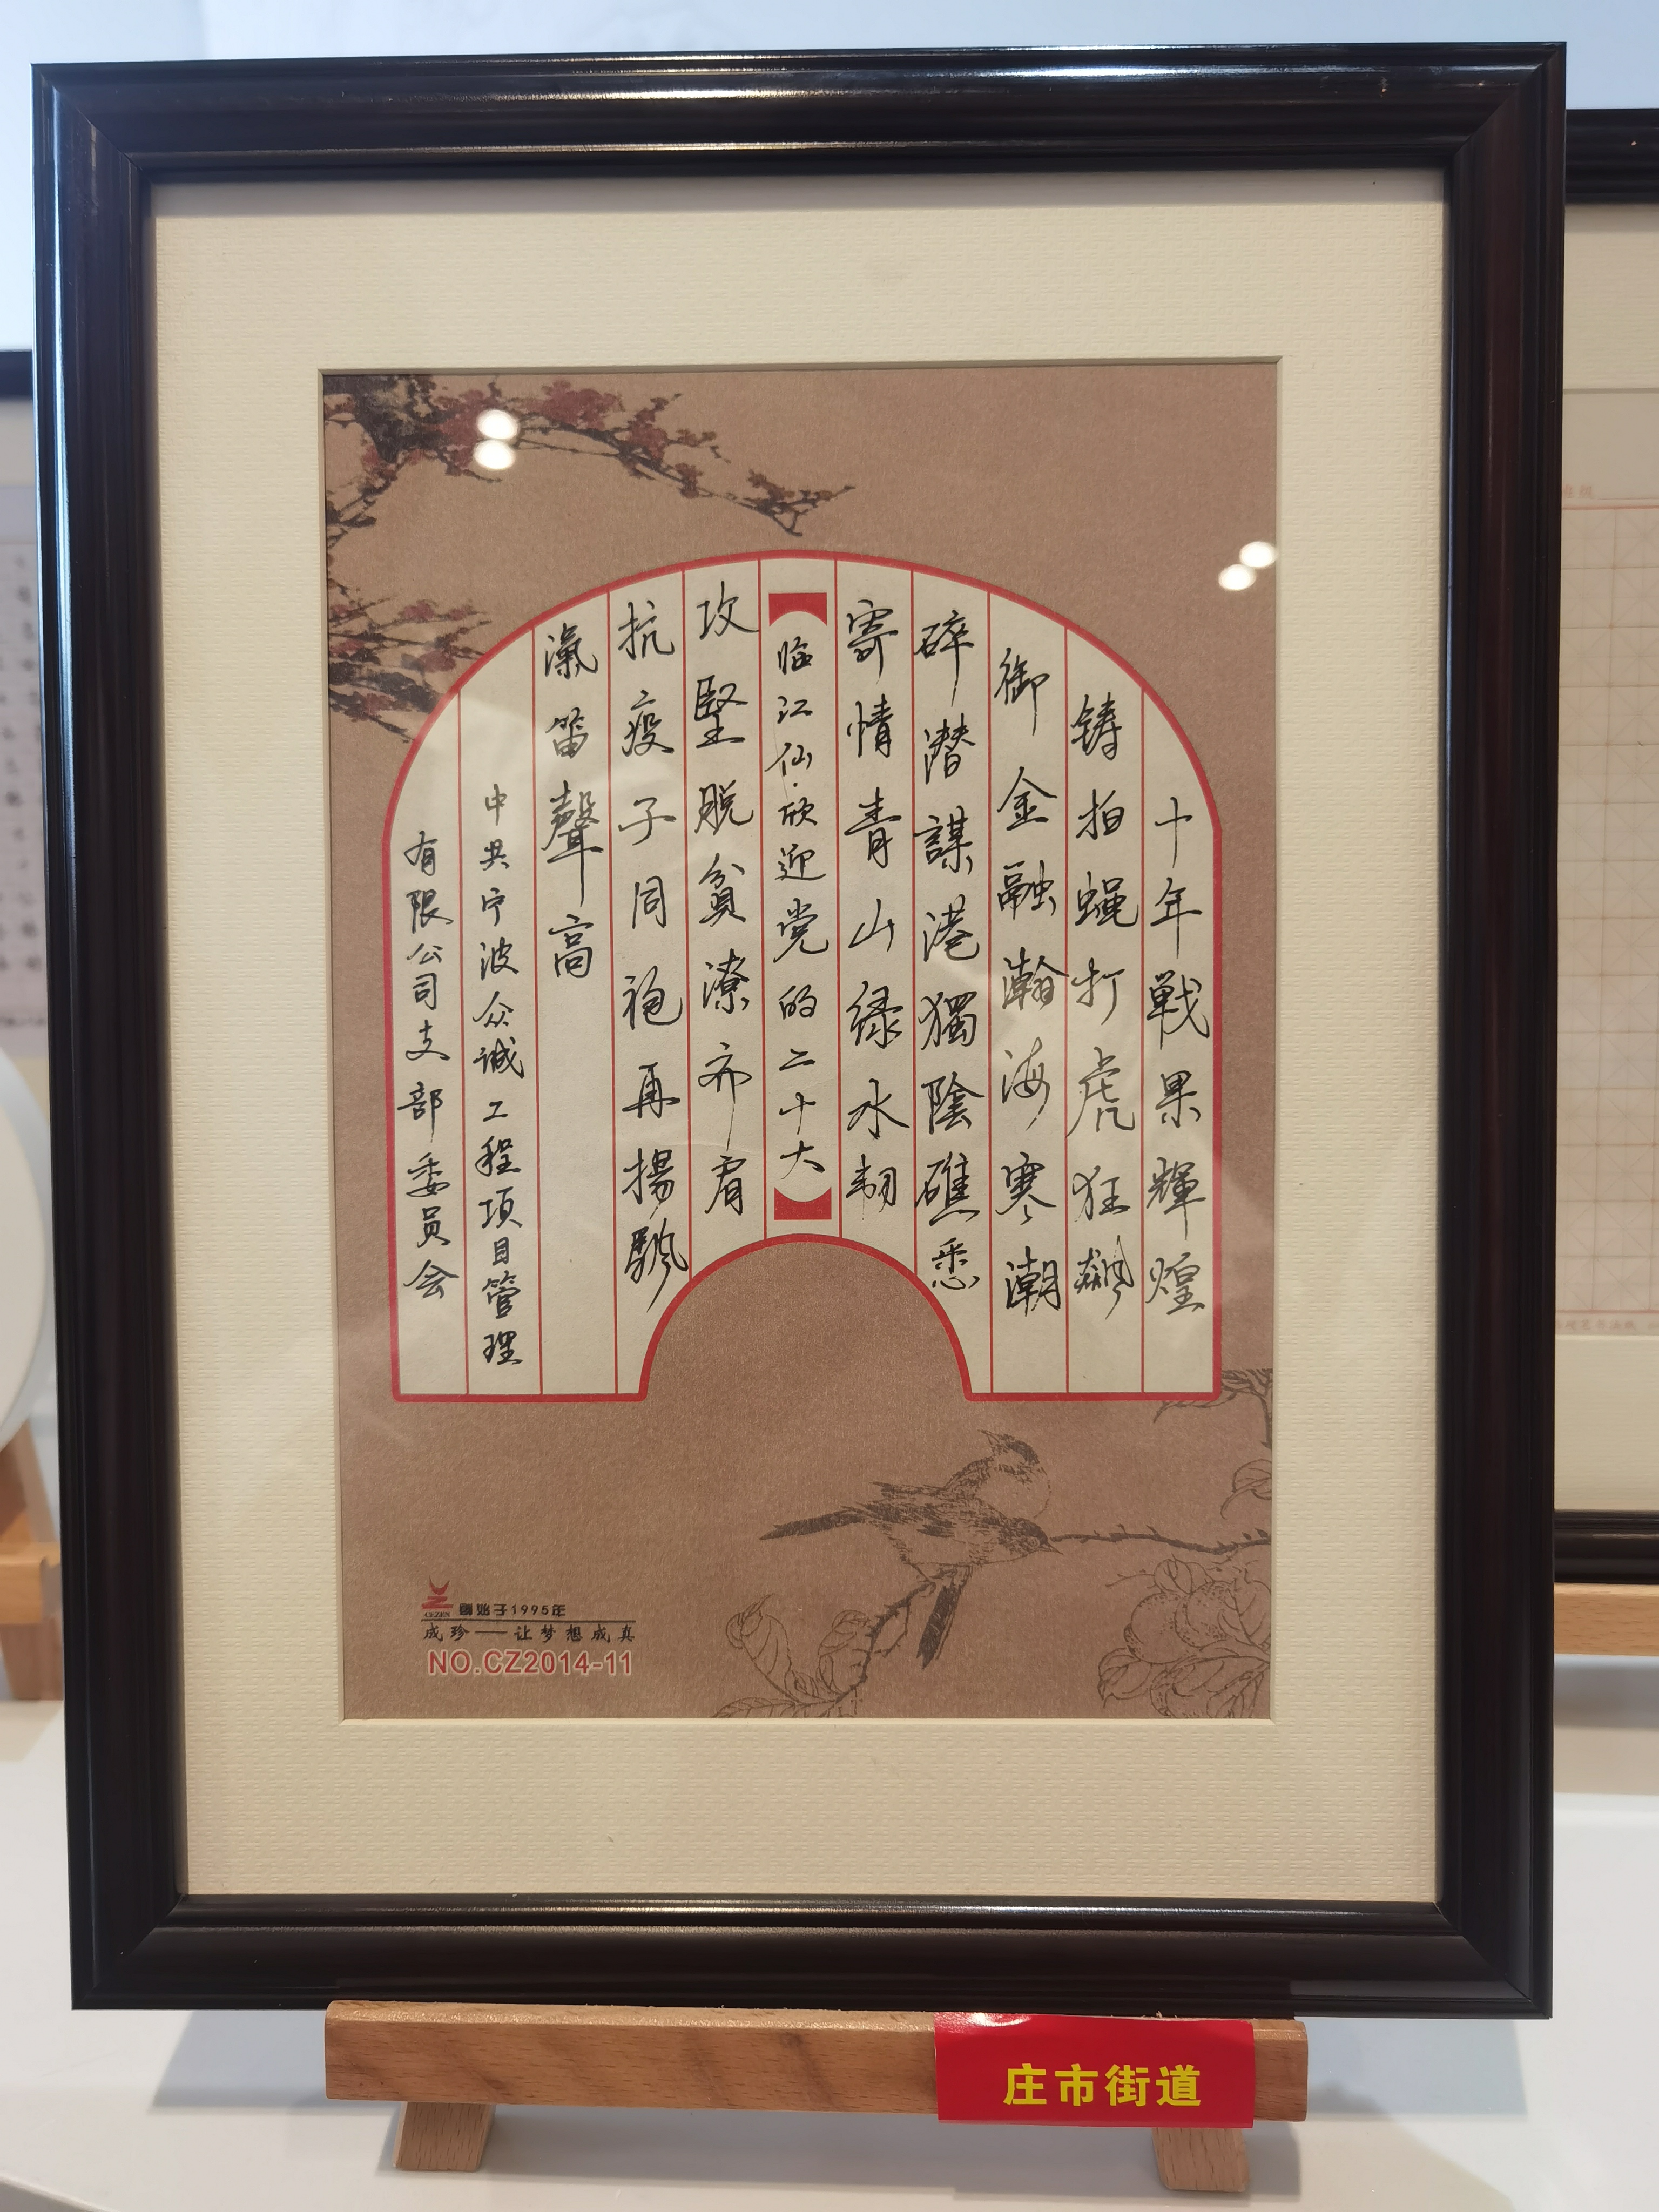 十年戦果輝煌
铸拍蝇打虎狂飆
御金融瀚海寒潮
碎潜謀港獨陰礁悉
寄情青山绿水韧
临江仙·欣迎党的二十大
攻堅脱貧潦
抗疫子同袍再揚颿
滊笛聲高
中共宁波众诚工程项目管理
有限公司支部委员会
CEZEN 創始于1995年
成珍——让梦想成真
NO.CZ2014-11
庄市街道